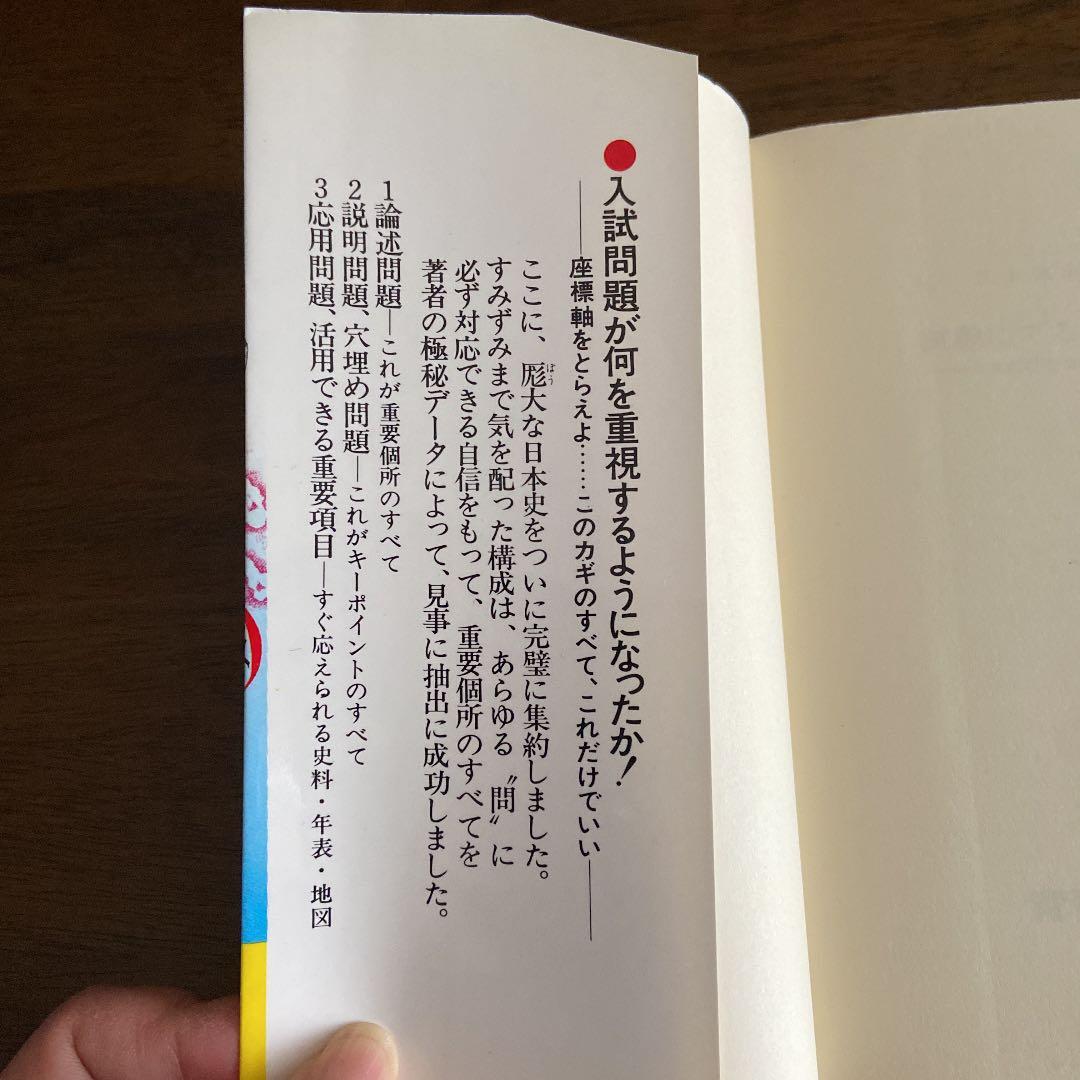 ●入試問題が何を重視するようになったか!
――座標軸をとらえよ……このカギのすべて、これだけでいい――
ここに、厖大な日本史をついに完璧に集約しました。
ぼう
すみずみまで気を配った構成は、あらゆる〝問〟に
必ず対応できる自信をもって、重要個所のすべてを
著者の極秘データによって、見事に抽出に成功しました。
1論述問題―これが重要個所のすべて
2説明問題、穴埋め問題―これがキーポイントのすべて
3応用問題、活用できる重要項目―すぐ応えられる史料・年表・地図